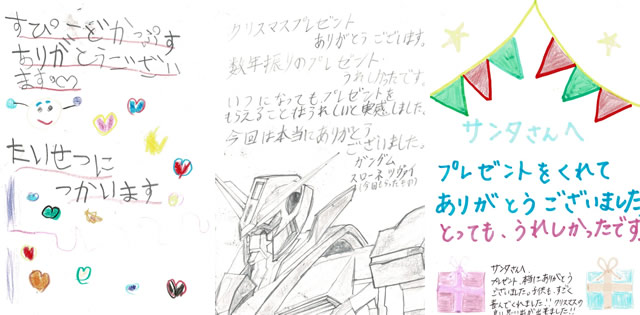 すぴーどかっぷす
ありがとうーございい
ます。
たいせつに
つかいます
クリスマスプレゼント
ありがとうございます。
数年振りのプレゼント
うれしかったです。
いつになってもプレゼントを
もらえることはうれしいと実感しました。
今回は本当にありがとう
ございました。
ガンダム
スローネ
サンタさんへ
プレゼントをくれて
ありがとうございました
とっても、うれしかったです
サンタさんへ
プレゼント、本当にありがとう
ございました。子供も、すごく
喜んでくれました!!クリスマスの
出来ました!!